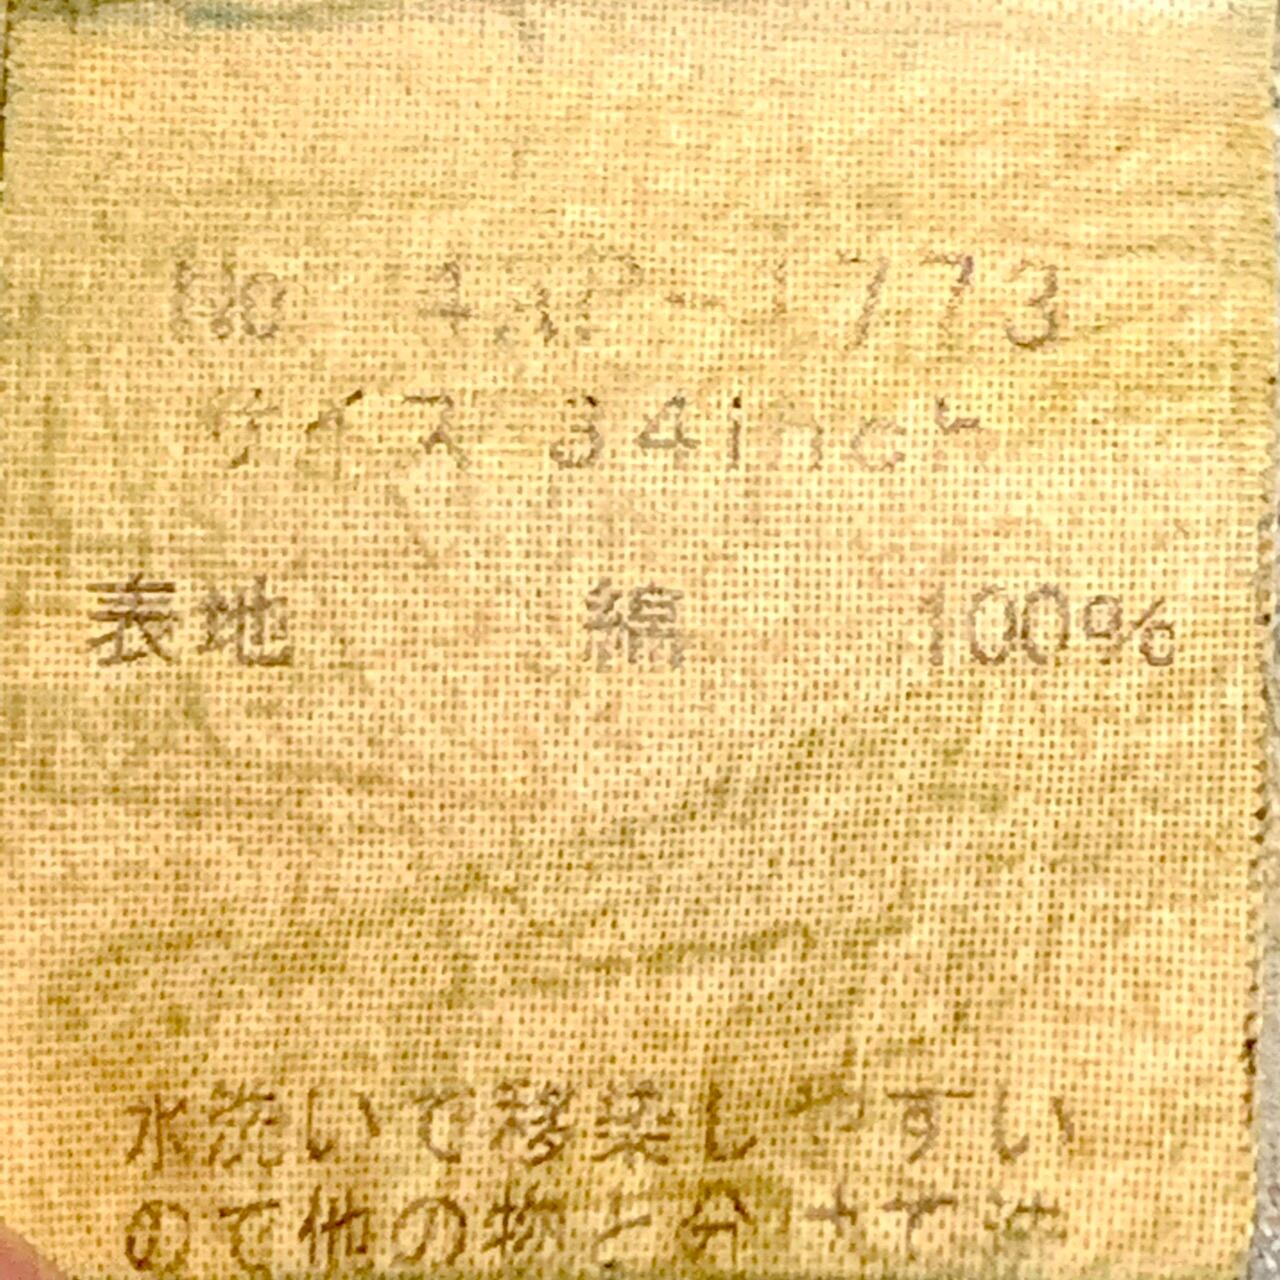 No 1773
サイズ 34inch
表地 綿 100%
水洗いで移染しやすい
ので他の物と分けて洗